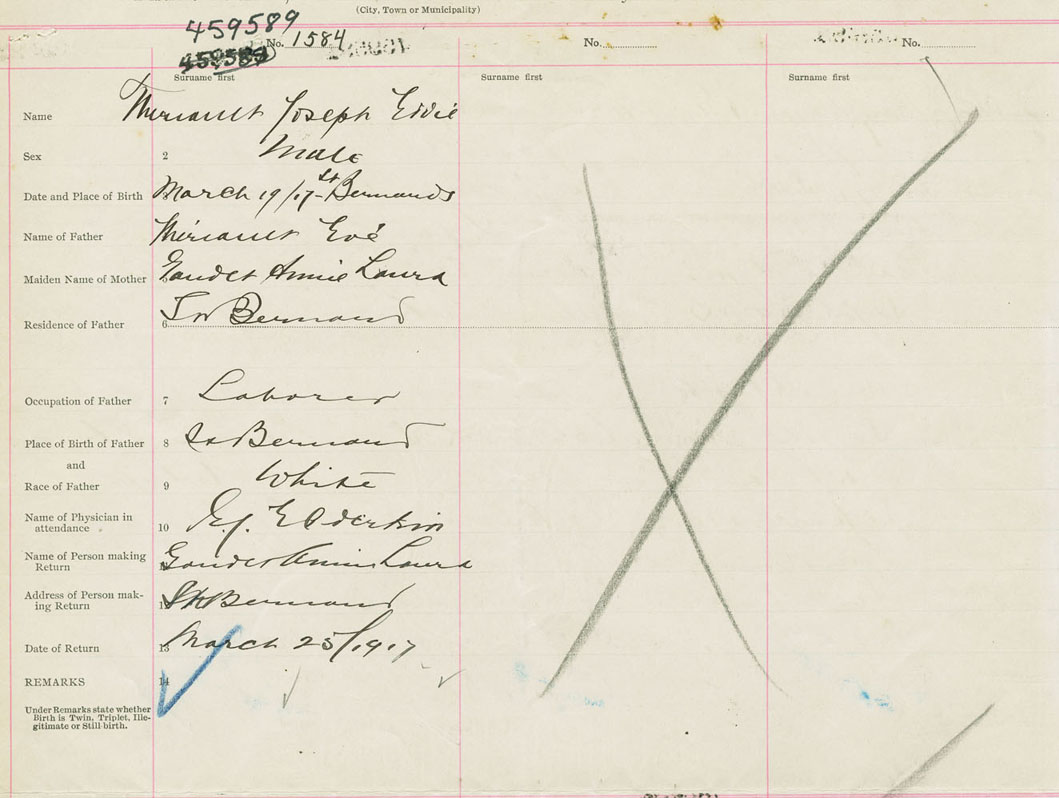 (City, Town or Municipality)
459589
No. 1584 No. No.
Surname first Surname first Surname first
Name Theriault Joseph Eddie
Sex 2 Male
Date and Place of Birth March 19/17 St Bernards
Name of Father Theriault
Maiden Name of Mother Gaudet Annie Laura
Residence of Father 6 Bernard
Occupation of Father 7 Laborer
Place of Birth of Father 8 Bernard
and
Race of Father 9 White
Name of Physician in
attendance 10 Elderkin
Name of Person making
Return Gaudet Annie Laura
Address of Person mak-
ing Return Bernard
Date of Return 13 March 25/1917
REMARKS 14
Under Remarks state whether
Birth is Twin, Triplet, Ille-
gitimate or Still-birth.